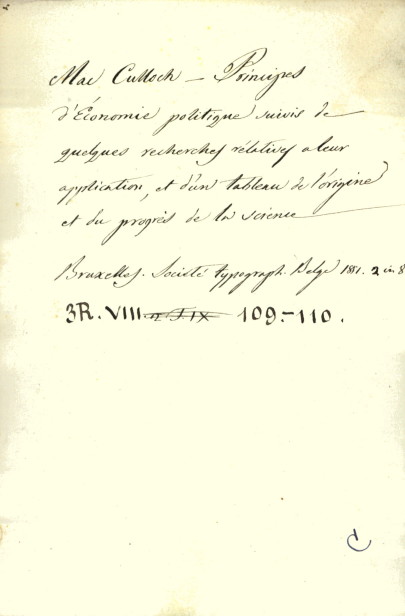 Mac Culloch — Principes
d'Économie politique suivis de
quelques recherches rélatives a leur
application, et d'un tableau de l'origine
et du progrès de la science
Bruxelles. Société typograph. Belge 2 in 8
3R. VIII 109.-110.